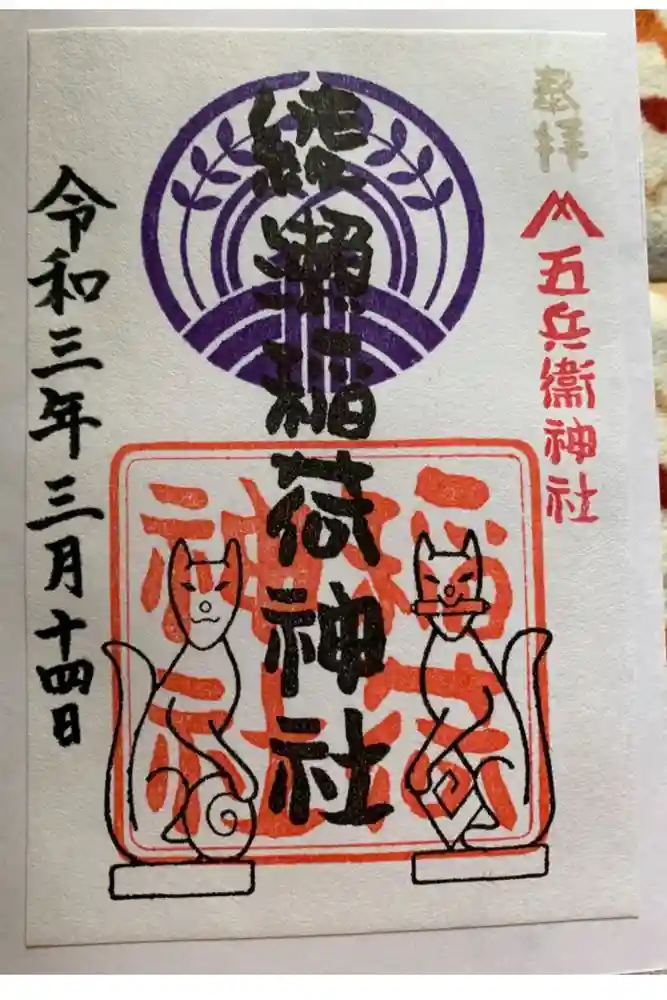 奉拝
五兵衛神社
綾瀬稲荷神社
令和三年三月十四日
稲荷
神社